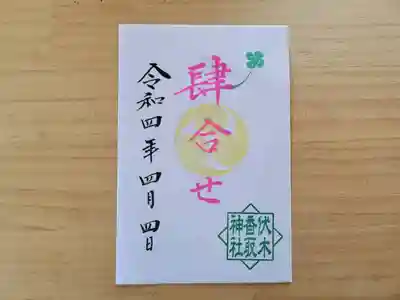 肆合せ
令和四年四月四日
伏木
香取
神社